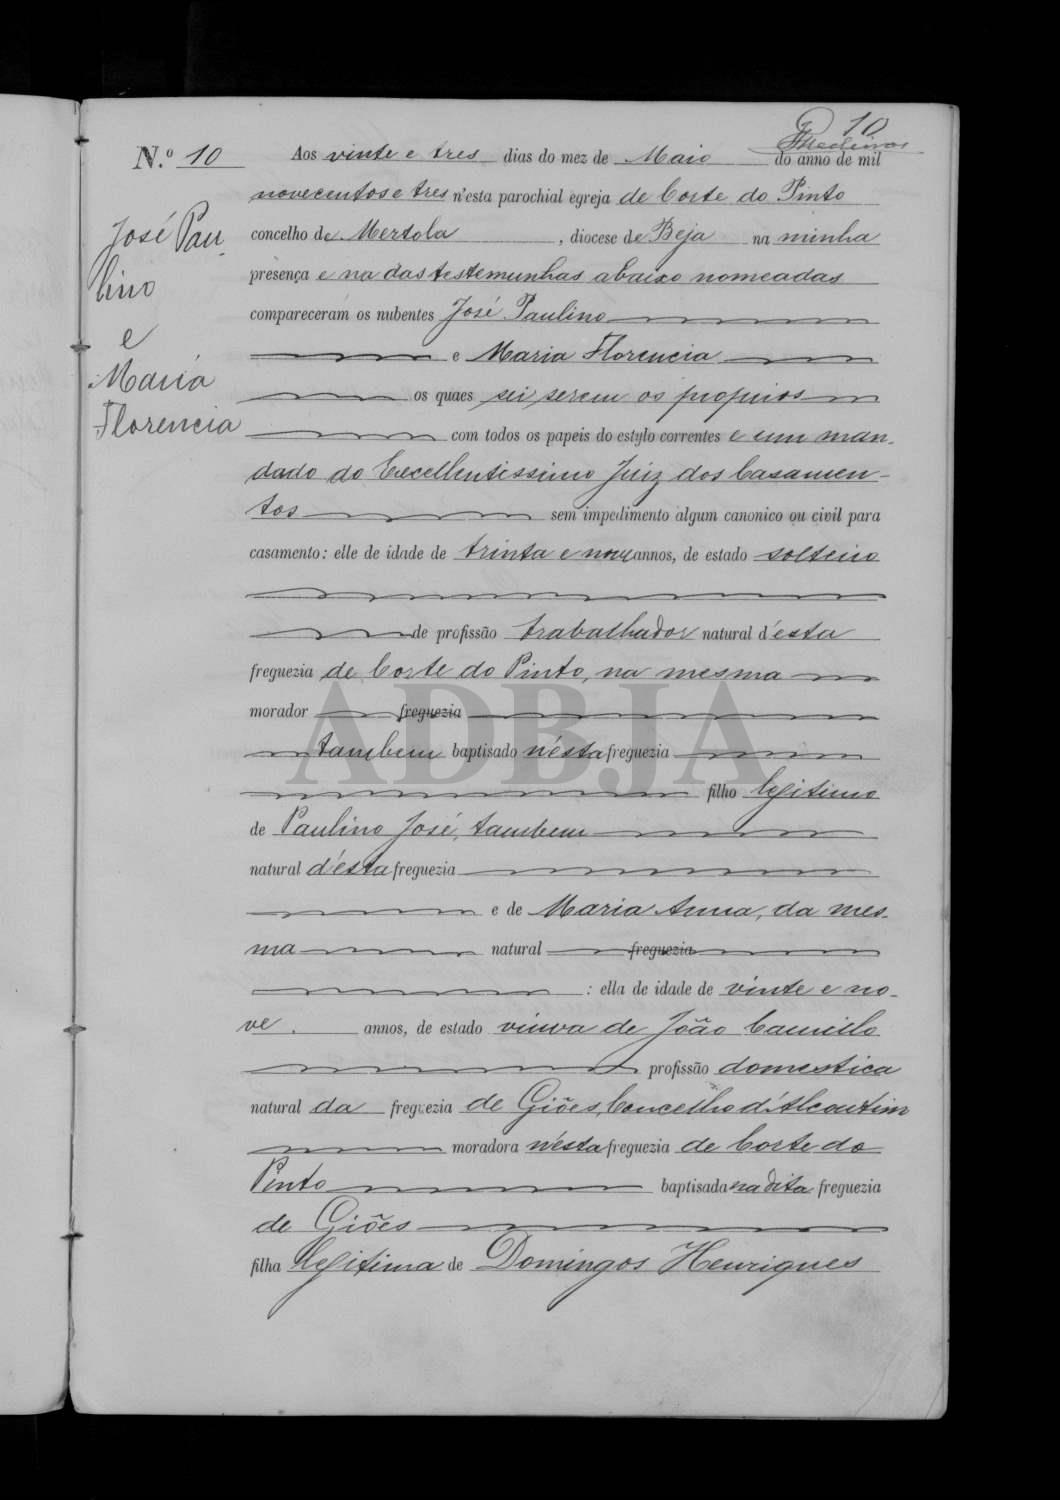 10
Medeiros
N.º 10
José Pau
lino
e
Maria
Florencia
Aos vinte e tres dias do mez de Maio do anno de mil
novecentos e tres n'esta parochial egreja de Corte do Pinto
concelho de Mertola, diocese de Beja na minha
presença e na das testemunhas abaixo nomeadas
compareceram os nubentes José Paulino
e Maria Florencia
os quaes sei serem os proprios
com todos os papeis do estylo correntes e um man-
dado do Excellentissimo Juiz dos Casamen-
tos sem impedimento algum canonico ou civil para
casamento: elle de idade de trinta e nove annos, de estado solteiro
de profissão trabalhador natural d'esta
freguezia de Corte do Pinto, na mesma
morador freguezia
tambem baptisado n'esta freguezia
filho legitimo
de Paulino José, tambem
natural d'esta freguezia
e de Maria Anna, da mes-
ma natural freguezia
: ella de idade de vinte e no-
ve. annos, de estado viuva de João Camillo
profissão domestica
natural da freguezia de Giões, Concelho d'Alcoutim
moradora n'esta freguezia de Corte do
Pinto baptisada na dita freguezia
de Giões
filha legitima de Domingos Henriques
ADBJA